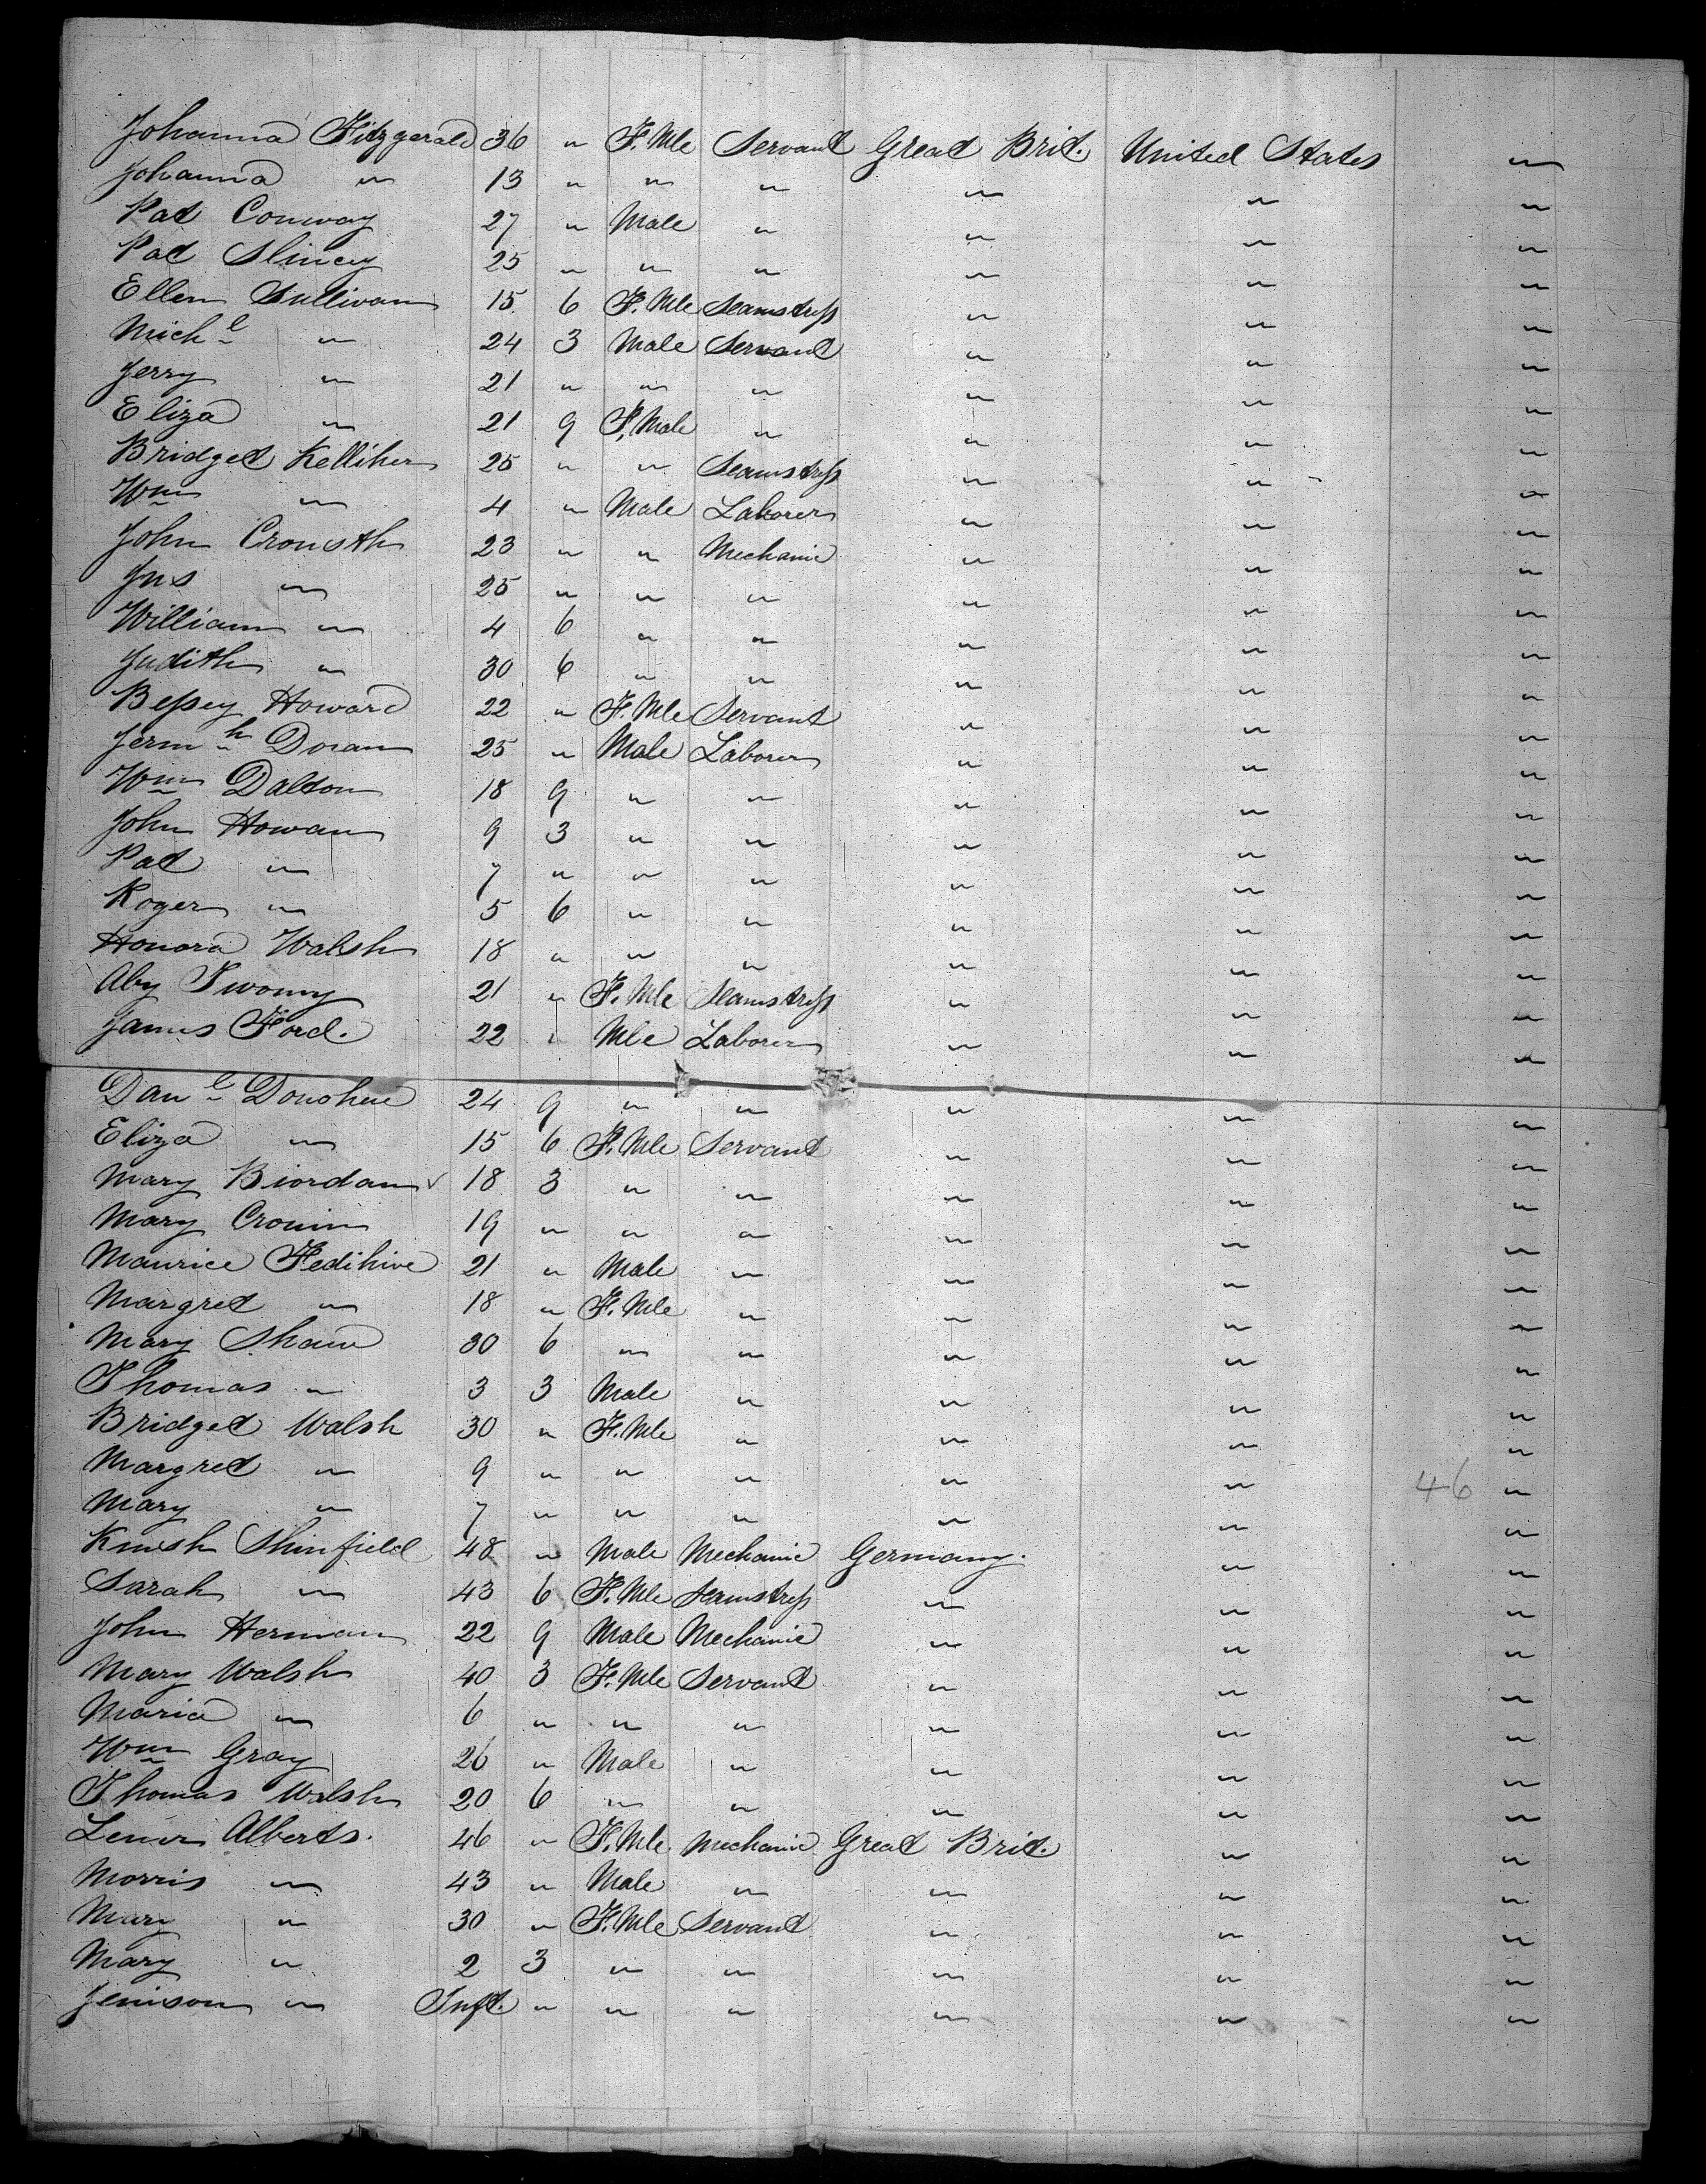 Johanna Fitzgerald 36 " F. Mle Servant Great Brit. United States "
Johanna " 13 " " " " " "
Pat Conway 27 " Male " " " "
Pat Slincy 25 " " " " " "
Ellen Sullivan 15 6 F. Mle Seamstress " " "
Mich l " 24 3 Male Servant " " "
Jerry " 21 " " " " " "
Eliza " 21 9 F. Male " " " "
Bridget Kelliher 25 " " Seamstress " " "
Wm " 4 " Male Laborer " " "
John Crowsth 23 " " Mechanic " " "
Jns " 25 " " " " " "
William " 4 6 " " " " "
Judith " 30 6 " " " " "
Bessey Howard 22 " F. Mle Servant " " "
Jerm h Doran 25 " Male Laborer " " "
Wm Dalton 18 9 " " " " "
John Howan 9 3 " " " " "
Pat " 7 " " " " " "
Roger " 5 6 " " " " "
Honora Walsh 18 " " " " " "
Aby Twomy 21 " F. Mle Seamstress " " "
James Ford. 22 " Mle Laborer " " "
Dan l Donohue 24 9 " " " " "
Eliza " 15 6 F. Mle Servant " " "
Mary Biordan 18 3 " " " " "
Mary Cronin 19 " " " " " "
Maurice Fedihive 21 " Male " " " "
Margret " 18 " F. Mle " " " "
Mary Shaw 30 6 " " " " "
Thomas " 3 3 Male " " " "
Bridget Walsh 30 " F. Mle " " " "
Margret " 9 " " " " " 46 "
Mary " 7 " " " " " "
Knish Shinfield 48 " Male Mechanic Germany. " "
Sarah " 43 6 F. Mle Seamstress " " "
John Herman 22 9 Male Mechanic " " "
Mary Walsh 40 3 F. Mle Servant " " "
Maria " 6 " " " " " "
Wm Gray 26 " Male " " " "
Thomas Walsh 20 6 " " " " "
Lener Alberts. 46 " F. Mle Mechanic Great Brit. " "
Morris " 43 " Male " " " "
Mary " 30 " F. Mle Servant " " "
Mary " 2 3 " " " " "
Jenison " Inft. " " " " " "